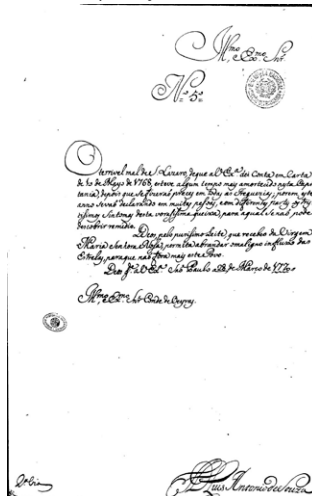 Illmo. e Exmo. Snr.
N.º 5.º
O terrivel mal de S. Lazaro, de que a V. Exa. dei Conta em Carta
de 10 de Mayo de 1768, esteve algum tempo mays amortecido nesta Capi-
tania, depois que se fizerão preces em todas as Freguezias, porem, este
anno se vay declarando em muitas pessoas, com differentes
Symtomas desta voracissima queixa, para a qual se não pode
descobrir remedio.
Deos, pelo purissimo Leite, que recebeo da Virgem
Maria Senhora Nossa, permita abrandar o maligno influxo das
Estrelas, para que não fira mays este Povo.
Deos g.e a V. Exa. São Paulo a 28 de Março de 1770
Illmo. e Exmo. Snr. Conde de Oeyras
D. Luis Antonio de Souza